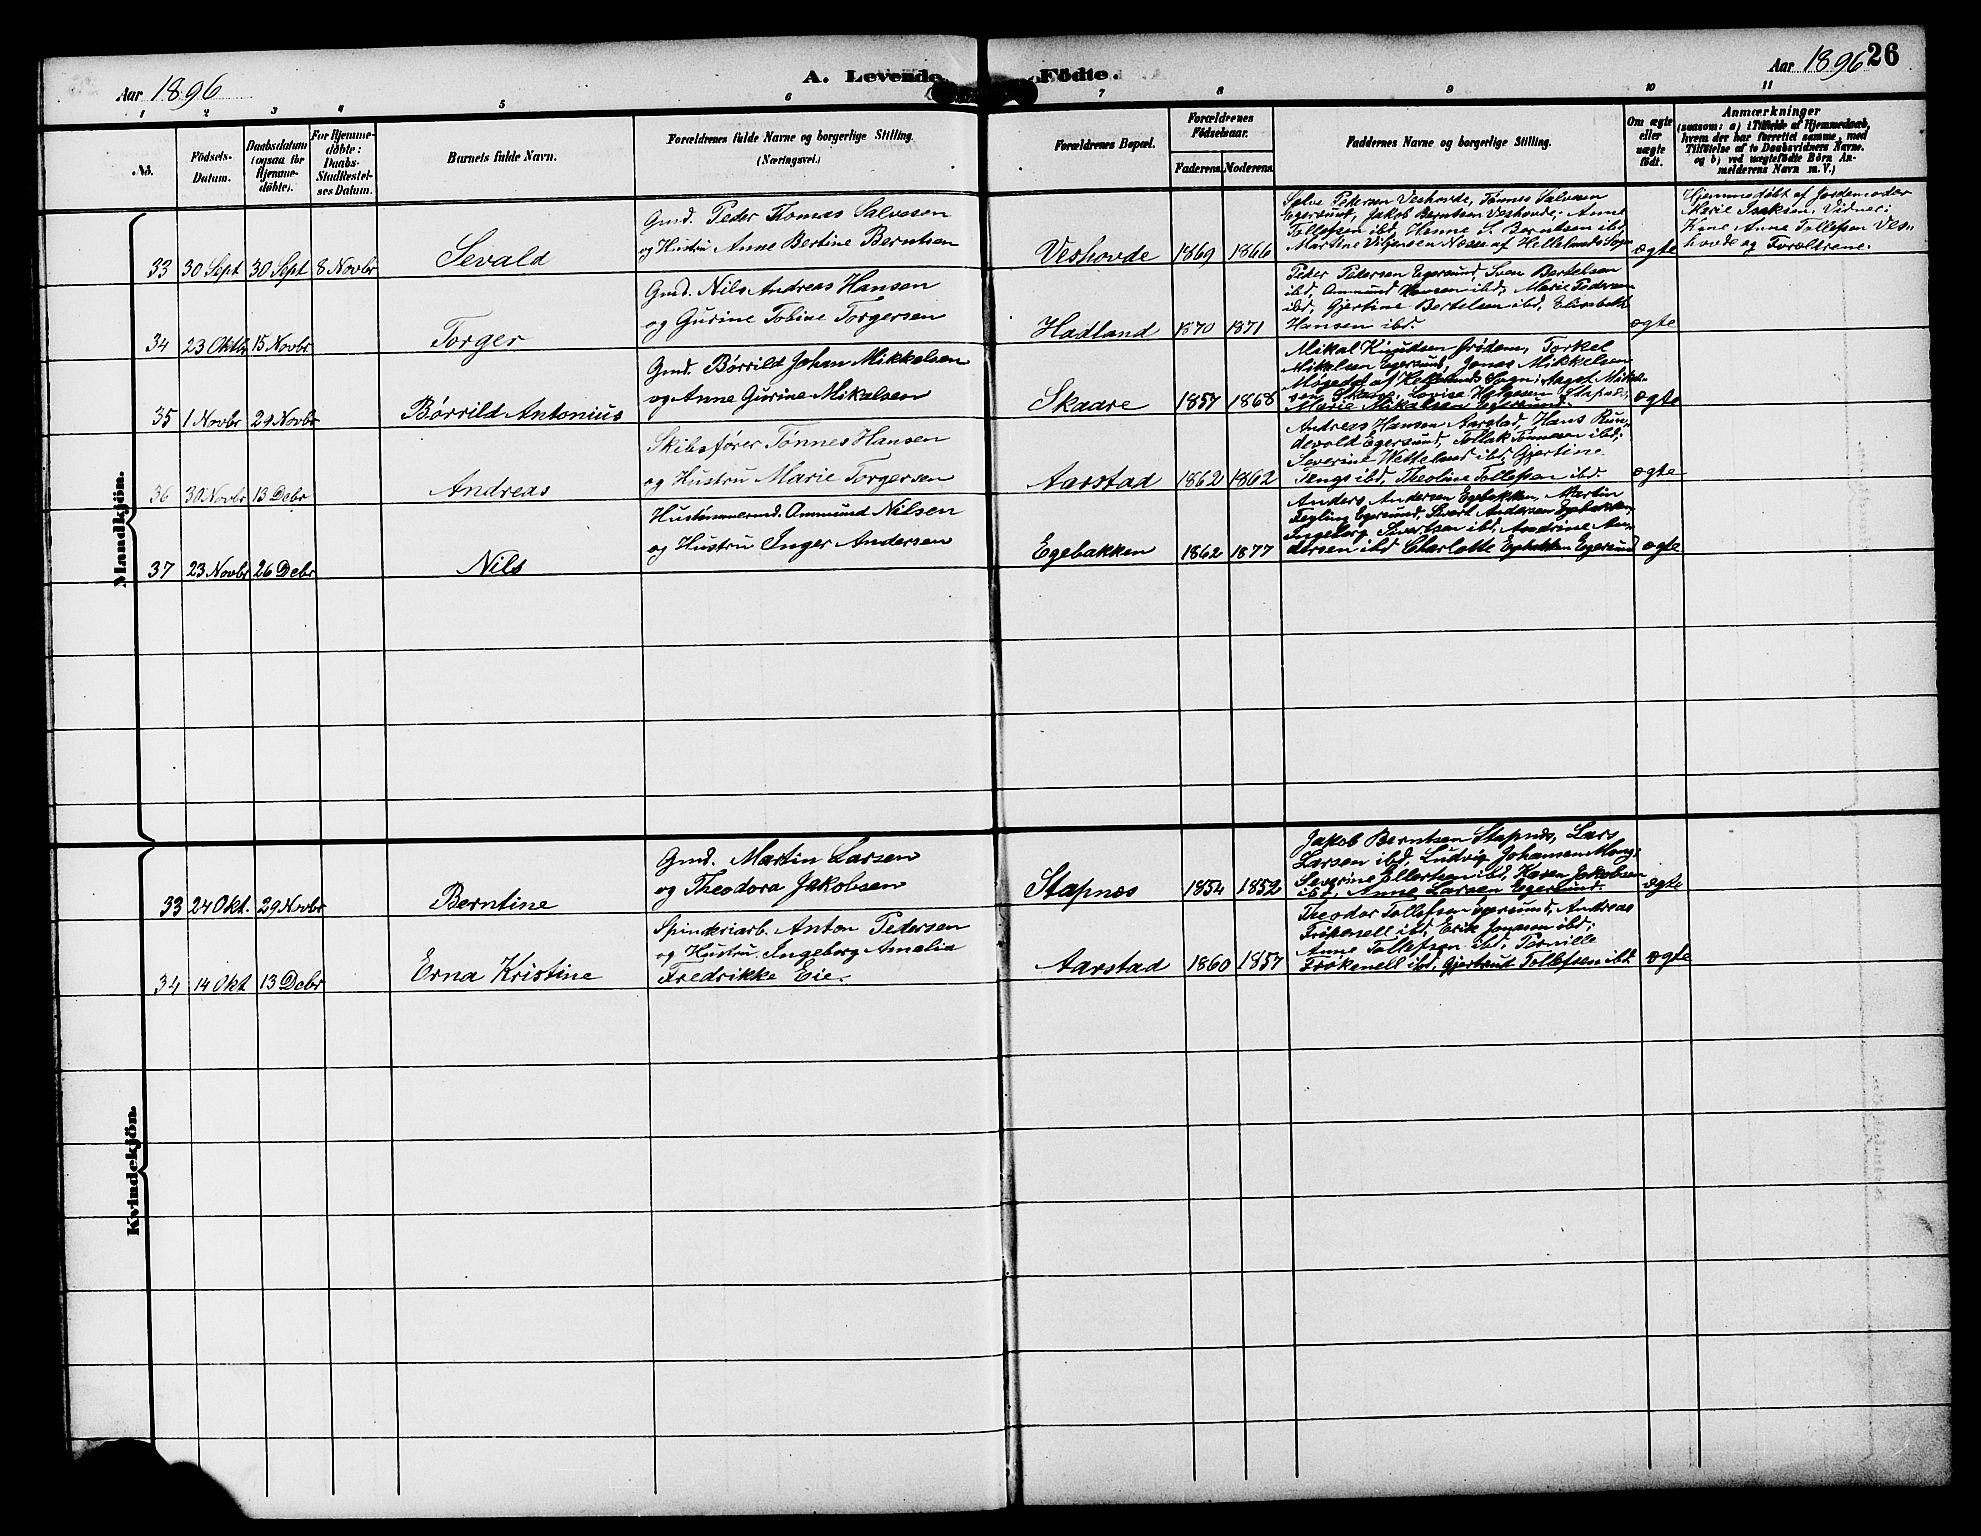 Aar 1896
A. Levende
Födte.
Aar 1896
26
1 2 3 4 5 6 7 8 9 10 11
No.
Födsels-
Datum.
Daabsdatum
(ogsaa for
Hjemme-
döbte).
For Hjemme-
döbte:
Daabs-
Stadfæstel-
ses Datum.
Barnets fulde Navn.
Forældrenes fulde Navne og borgerlige Stilling.
(Næringsvei.)
Forældrenes Bopæl.
Forældrenes
Födselsaar.
Faderens.
Moderens.
Faddernes Navne og borgerlige Stilling.
Om ægte
eller
uægte
födt.
Anmærkninger
(saasom: a) i Tilfælde af Hjemmedaab,
hvem der har forrettet samme, med
Tilföielse af to Daabsvidners Navne.
og b) ved uægtefödte Börn An-
melderens Navn m. V.)
Mandkjön.
33 30 Sept 30 Sept 8 Novbr
Sevald
Gmd. Peder Thomas Salvesen
og Hustru Anne Bertine Berntsen
Veshovde 1869 1866
Petersen Veshovde, Tønnes Salvesen
Egersund, Jakob Berntsen Veshovde; Anne
Tollefsen ibd, Hanne S. Berntsen ibd,
Martine Næses af Hellelands Sogn
ægte
Hjemmedøbt af Jordemoder
Marie Isaksen. Vidner:
Kone Anne Tollefsen Ves-
hovde og Foreldrene.
34 23 Oktbr 15 Novbr
Torger
Gmd. Nils Andreas Hansen
og Gurine Tobine Torgersen
Hadland 1870 1871
Peder Pedersen Egersund, Sven Bertelsen
ibd, Ommund Hansen ibd; Marie Pedersen
ibd, Gjertine Bertelsen ibd, Elisabeth
Hansen ibd.
ægte
35 1 Novbr 29 Novbr
Børrild Antonius
Gmd. Børrild Johan Mikkalsen
og Anne Gurine Mikalsen
Skaare 1857 1868
Mikal Knudsen Grødem, Torkel
Mikalsen Egersund, Jonas Mikkelsen
Møgedal af Hellelands Sogn; Aaget Mikal-
sen Skaare, Lovise Stapnes;
Marie Mikalsen Egersund.
ægte
36 30 Novbr 13 Debr
Andreas
Skibsfører Tønnes Hansen
og Hustru Marie Torgersen
Aarstad 1862 1862
Andreas Hansen Aarstad, Hans Run-
devold Egersund, Tollak Tønnesen ibd;
Severine Wetteland ibd, Gjertine
Tengs ibd, Theoline Tollefsen ibd.
ægte
37 23 Novbr 26 Debr
Nils
Hustømmermd. Ommund Nilsen
og Hustru Inger Andersen
Egebakken 1862 1877
Anders Andersen Egebakken, Martin
Egersund, Sivert Andersen Egebakken,
Ingeborg Sivertsen ibd, Andrine An-
dersen ibd Charlotte Egebakken Egersund
ægte
Kvindekjön.
33 24 Okt. 29 Novbr
Berntine
Gmd. Martin Larsen
og Theodora Jakobsen
Stapnes 1854 1852
Jakob Berntsen Stapnes, Lars
Larsen ibd, Ludvig Johansen Mong;
Severine Ellertsen ibd, Karen Jakobsen
ibd, Anne Larsen Egersund.
ægte
34 14 Okt 13 Debr
Erna Kristine
Spinderiarb. Anton Pedersen
og Hustru. Ingeborg Amalia
Fredrikke Eie.
Aarstad 1860 1857
Theodor Tollefsen Egersund, Andreas
Frøkenell ibd, Erik Jonasen ibd;
Anne Tollefsen ibd, Pernille
Frøkenell ibd, Gjertrud Tollefsen ibd.
ægte